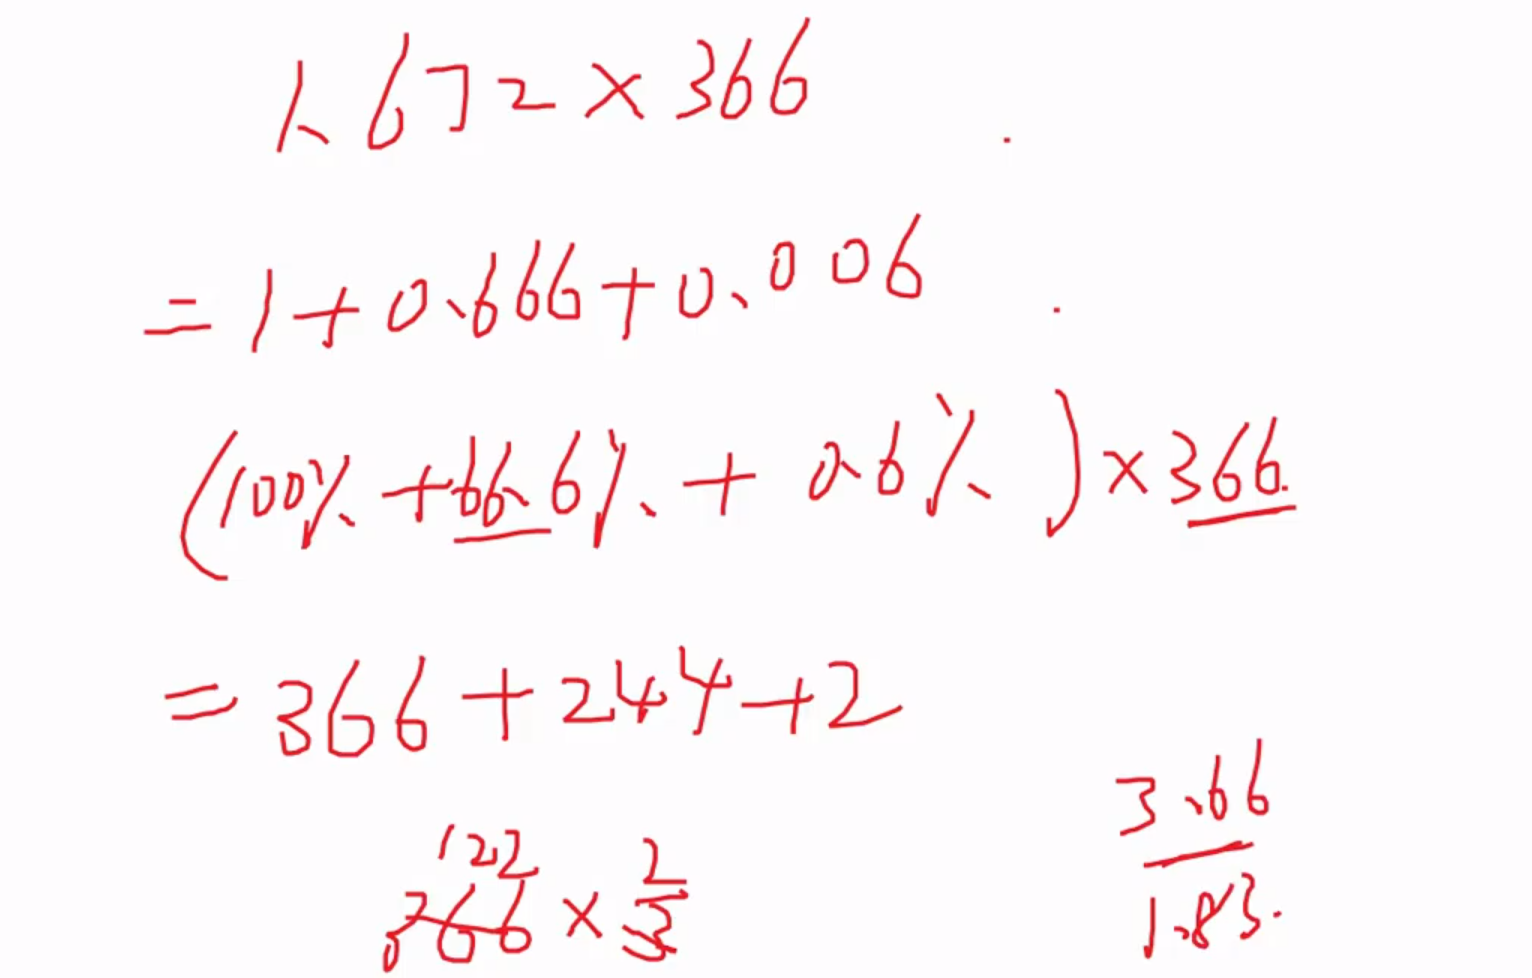 1.672×366
=1+0.666+0.006
(100%+66.6%+0.6%)×366
=366+244+2
3.66
122
366×2/3
1.83